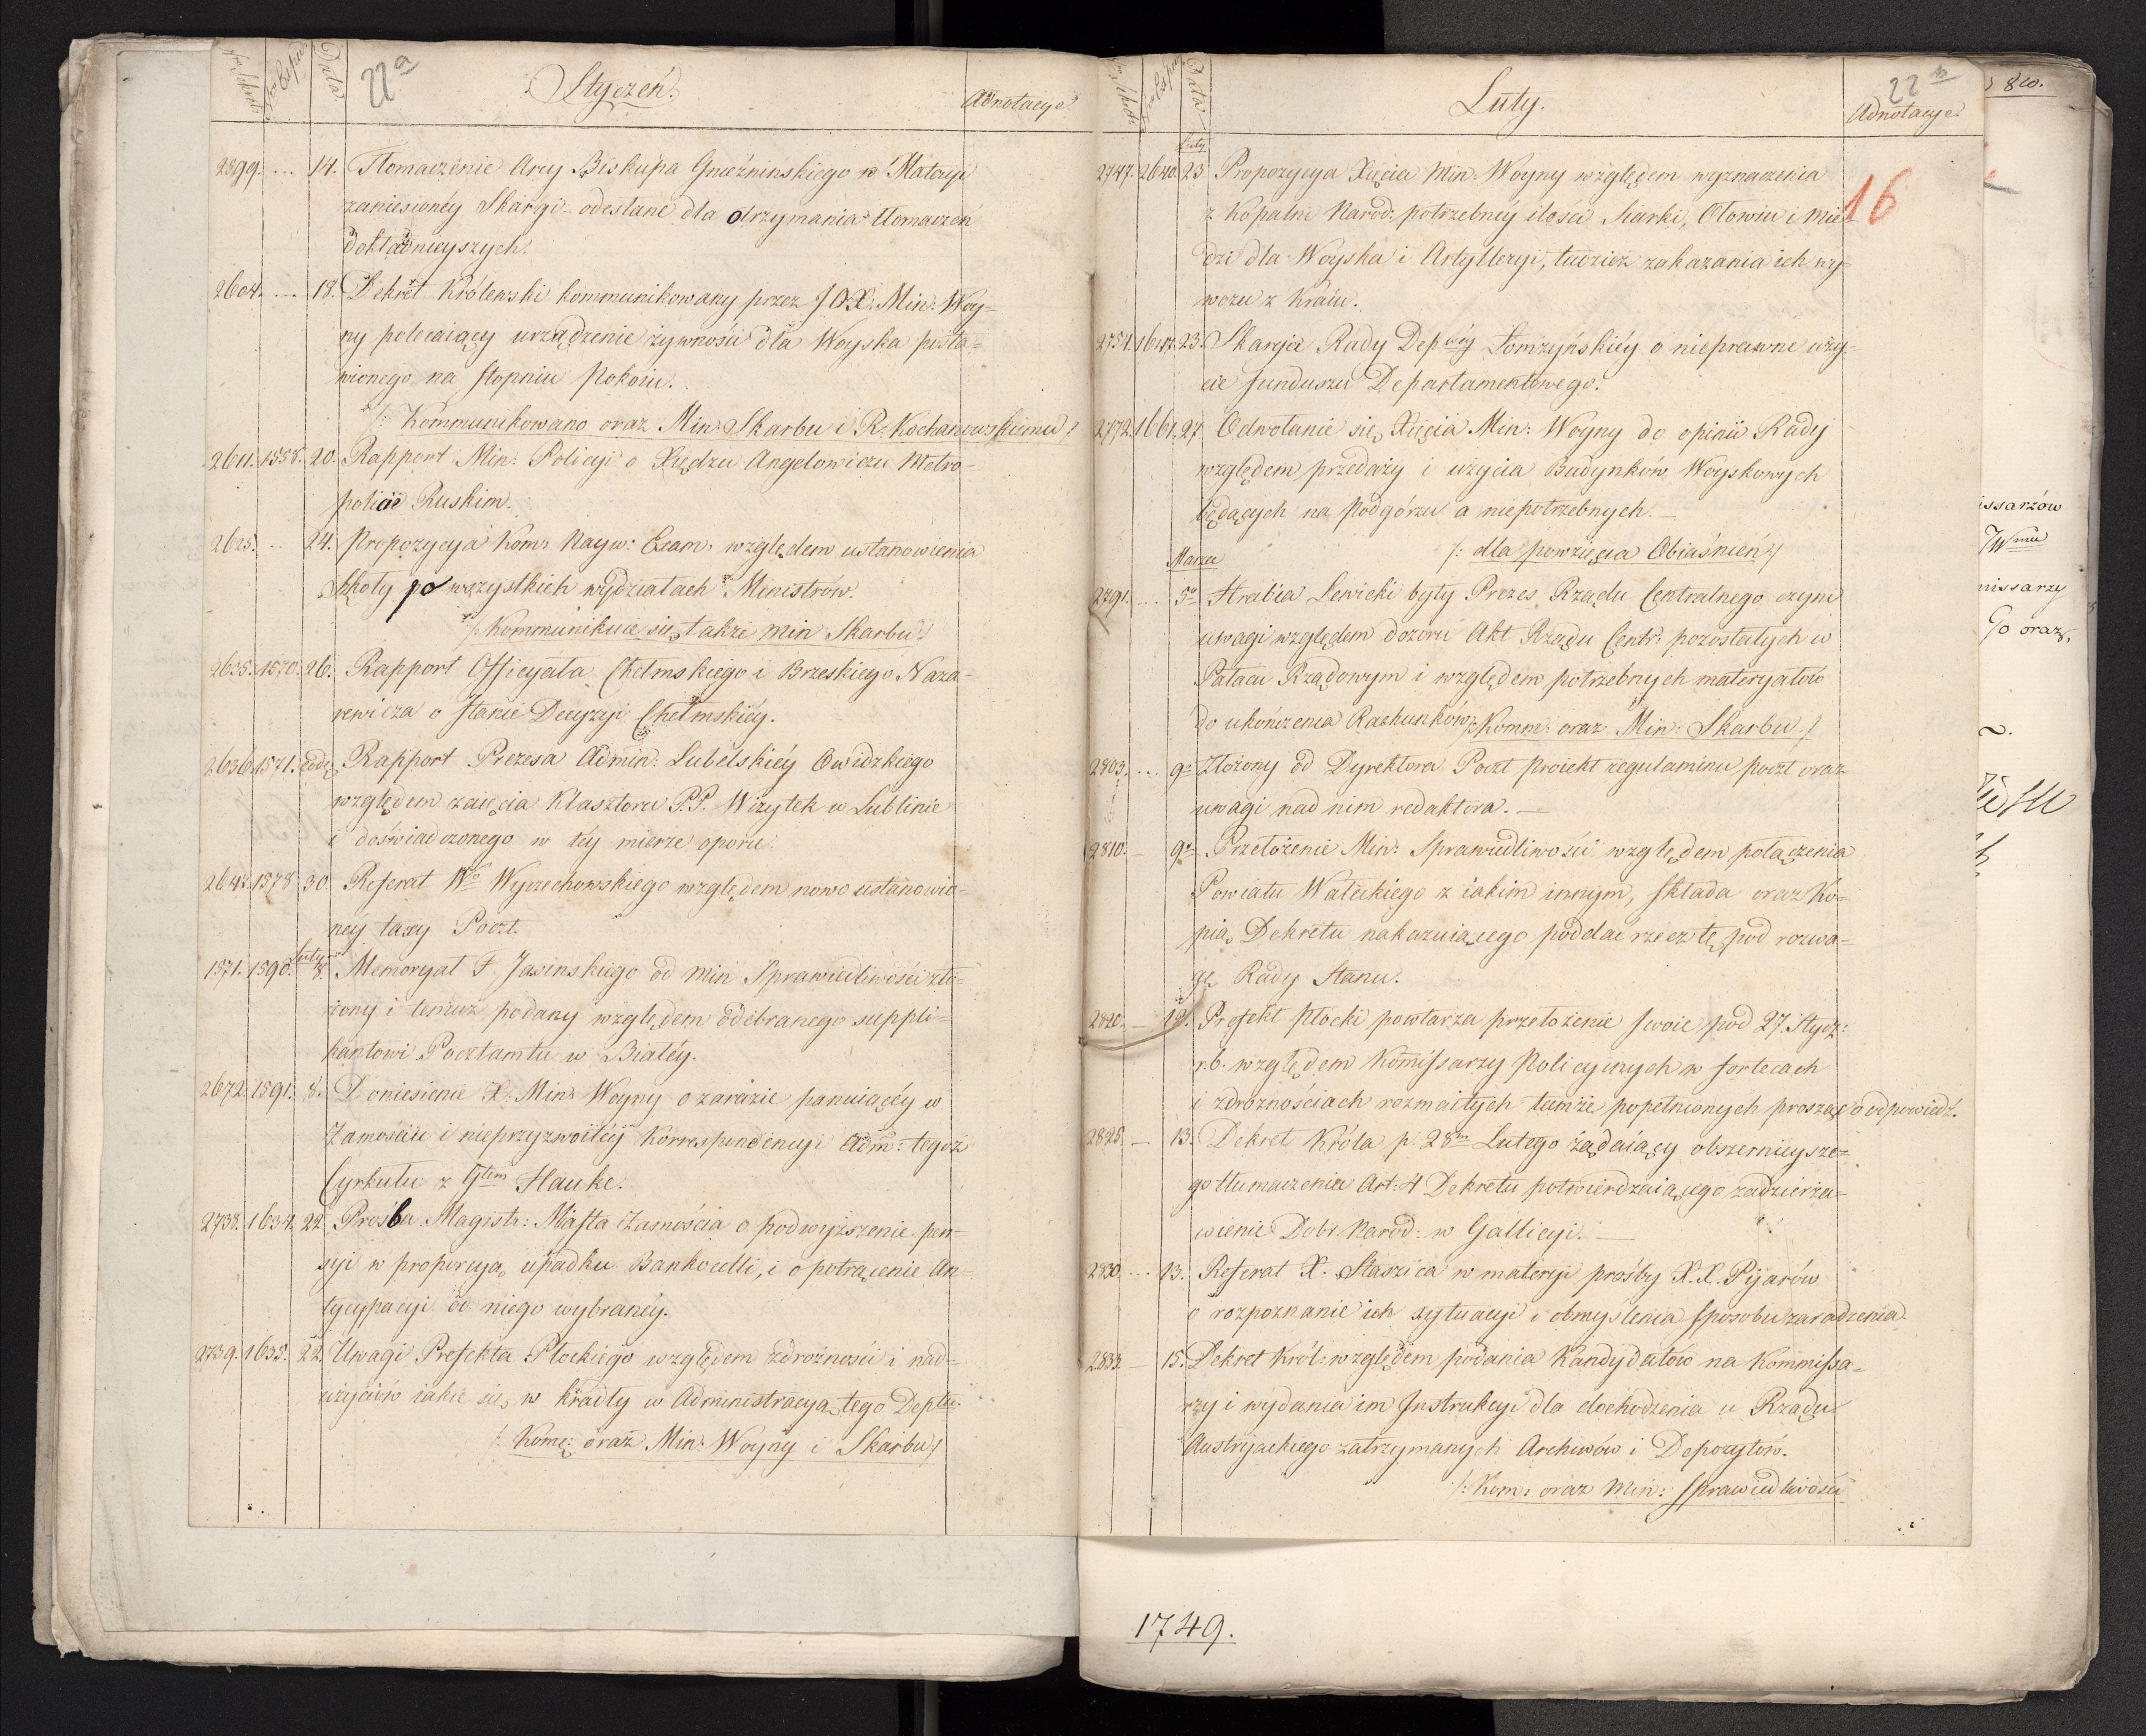 22a
Styczeń.
Data
Adnotacye.
2599. ... 14. Tłomaczenie Arcy Biskupa Gnieźnińskiego w Materyi
zaniesionéy Skargi - odesłane dla otrzymania tłomaczeń
dokładnieyszych.
2604. ... 18. Dekret Królewski kommunikowany przez JOX. Min: Woy-
ny polecaiący urządzenie żywności dla Woyska posta-
wionego na stopniu Pokoiu.
/: Kommunikowano oraz Min: Skarbu i R: Kochanowskiemu :/
2611. 1558. 20. Rapport Min: Policyi o Xiędzu Angelowiczu Metro-
policie Ruskim.
2625. ... 24. Propozycya Kom: Nayw: Exam: względem ustanowienia
Szkoły po wszystkich wydziałach Ministrów.
/: Kommunikuie się także Min Skarbu :/
2635. 1570. 26. Rapport Officyała Chełmskiego i Brzeskiego Naza-
rewicza o stanie Decyzyi Chełmskiéy.
2636. 1571. eod: Rapport Prezesa Admin: Lubelskiéy Owidzkiego
względem zaięcia Klasztoru P.P. Wizytek w Lublinie
i doświadczonego w téy mierze oporu.
264. 1578 30. Referat Wo Wyczechowskiego względem nowo ustanowio-
néy taxy Poczt.
Luty
1571. 1590. 8. Memoryał F. Jasinskiego od Min Sprawiedliwości zło-
żony i temuż podany względem odebranego suppli-
kantowi Pocztamtu w Białéy.
2672. 1591. 8. Doniesienie X: Min: Woyny o zarazie panuiącéy w
Zamościu i nieprzyzwoitéy Korrespondencyi Adm: tegoż
Cyrkułu z Głem Hauke.
2738. 1634. 22. Prośba Magistr: Miasta Zamościa o podwyższenie pen-
syi w proporcyą upadku Bankocetli, i o potrącenie An-
tycypacyi od niego wybranéy.
2739. 1635. 22. Uwagi Prefekta Płockiego względem zdrożności i nad-
użyciów iakie się w kradły w Administracyą tego Deptu.
/: Kom: oraz Min: Woyny i Skarbu :/
22b
Data
Luty.
Adnotacye
16
Luty
2747. 2640. 23 Propozycya Xięcia Min: Woyny względem wyznaczenia
z Kopalni Narod: potrzebnéy ilości Siarki, Ołowiu i Mie-
dzi dla Woyska i Artylleryi, tudzież zakazania ich wy-
wozu z Kraiu.
2751. 1647. 23. Skarga Rady Depwéy Łomżyńskiéy o nieprawne uży-
cie funduszu Departamentowego.
2772. 1661. 27 Odwołanie się Xięcia Min: Woyny do opinii Rady
względem przedaży i użycia Budynków Woyskowych
będących na Podgórzu a niepotrzebnych. -
/: dla powzięcia Obiaśnień :/
Marzec
2791. ... 5o Hrabia Lewicki były Prezes Rządu Centralnego czyni
uwagi względem dozoru Akt Rządu Centr: pozostałych w
Pałacu Rządowym i względem potrzebnych materyałów
do ukończenia Rachunków /: Komm: oraz Min: Skarbu :/
2803. ... 9o Złożony od Dyrektora Poczt proiekt regulaminu poczt oraz
uwagi nad nim redaktora. -
2810. - 9o Przełożenie Min: Sprawiedliwości względem połączenia
Powiatu Wałeckiego z iakim innym, składa oraz Ko-
pią Dekretu nakazuiącego poddać rzecz tę pod rozwa-
gę Rady Stanu.
2820. - 12. Prefekt Płocki powtarza przełożenie swoie pod 27. Stycz:
r.b. względem Kommissarzy Policyinych w fortecach
i zdrożnościach rozmaitych tamże popełnionych prosząc o odpowiedź.
2825. - 13. Dekret Króla p. 28m Lutego żądaiący obszernieysze-
go tłumaczenia Art: 4 Dekretu potwierdzaiącego zadzierża-
wienie Dobr Narod: w Gallicyi. -
2830. ... 13. Referat X. Staszica w materyi prośby X.X. Pijarów
o rozpoznanie ich sytuacyi i obmyslenia sposobu zaradzenia.
2833. - 15. Dekret Król: względem podania Kandydatów na Kommissa-
rzy i wydania im Instrukcyi dla dochodzenia u Rządu
Austryackiego zatrzymanych Archiwów i Depozytów.
/: Kom: oraz Min: Sprawiedliwości
1749.
810.
issarzów
JWmu
missarzy
Go oraz,